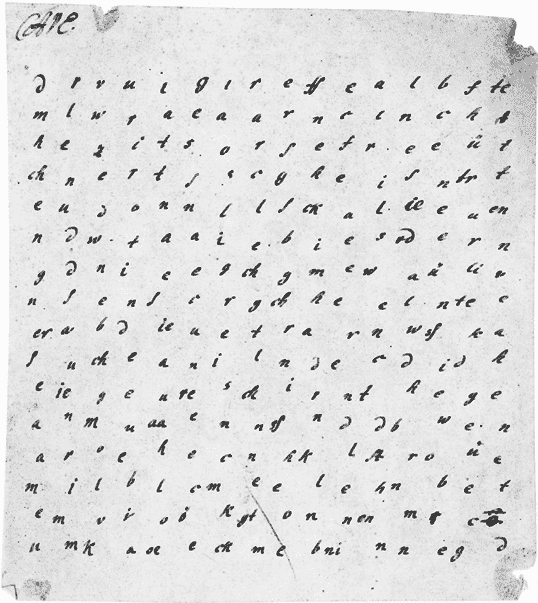 d r r u i g i r e ff e a l b f te
m l w r a e a a r n c i n c h t
h e z i t s o r s e t r e e ü t
ch n e r t s s c y h e i s ntr t
e u d o n n l l s ck a l ie e u en
n d w t a a i e b i e s rd e r n
g d n i e e g ch g m e w a ü li v
n s e n s c r g ch h e e l n te e
er a b d ie u e t r a r n w sf k a
s u ch e a n i l n d e c d i d h
e ie g e u re s ch i r n t h e g e
a n m u aa e n n sf n d d b w e n
a r o e h e c n k k l st r o ü e
m i l b l c m e e l e h n b e t
e m v i r o b k gt o n n en m t c
u m k a oe e ck m e b n i n n e g d